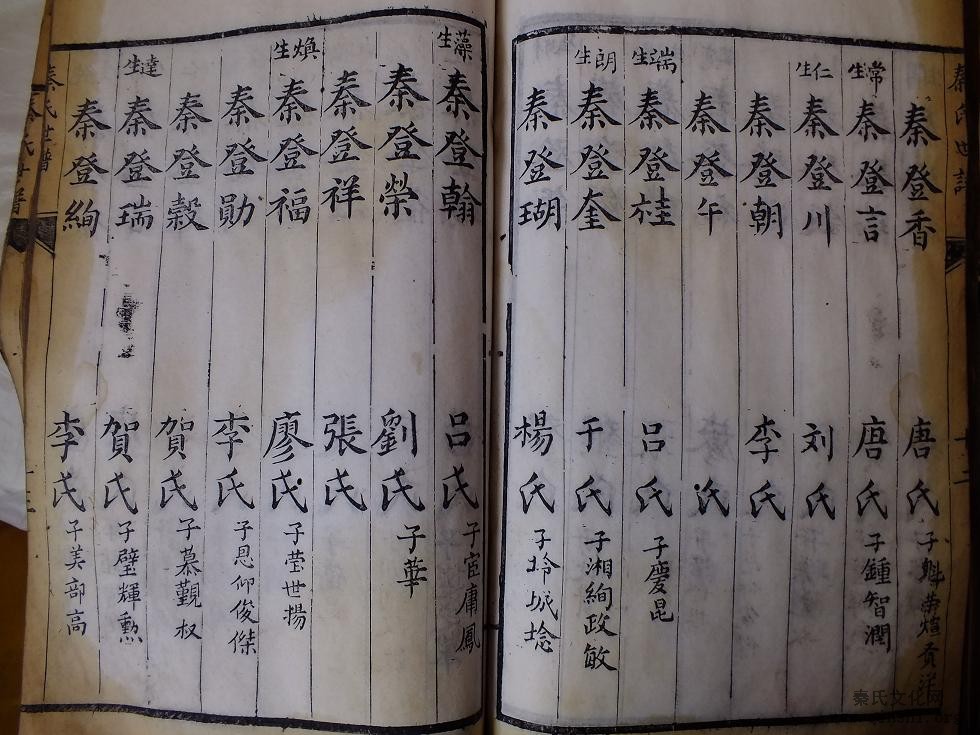 秦氏世譜
秦登香 唐氏 子 煊貢
常生 秦登言 唐氏 子鍾智潤
仁生 秦登川 刘氏
秦登朝 李氏
秦登午 氏
端生 秦登桂 吕氏 子慶昆
朗生 秦登奎 于氏 子湘絢政敏
秦登瑚 楊氏 子坽城埝
藻生 秦登翰 吕氏 子宦庸鳳
秦登榮 劉氏 子華
秦登祥 張氏
煥生 秦登福 廖氏 子莹世揚
秦登勛 李氏 子恩仰俊傑
秦登穀 賀氏 子慕觐叔
達生 秦登瑞 賀氏 子璧輝勲
秦登絢 李氏 子美部高
秦氏世譜
秦氏文化网